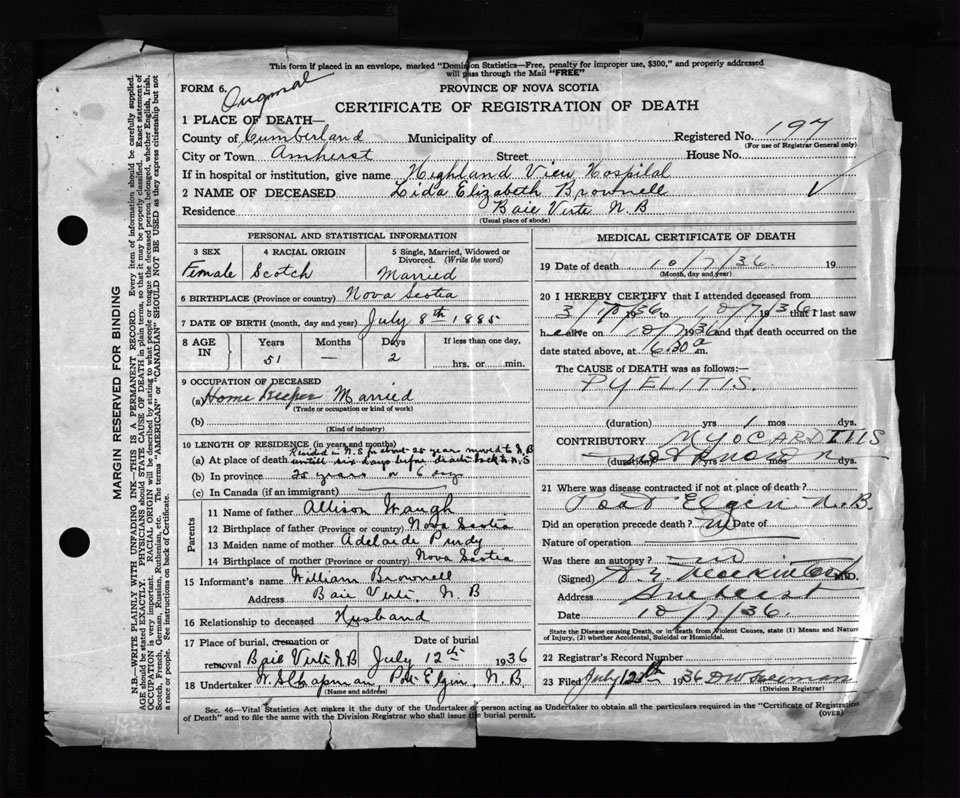 This form if placed in an envelope, marked "Dominion Statistics—Free, penalty for improper use, $300," and properly addressed
will pass through the Mail "FREE"
FORM 6.
Original
PROVINCE OF NOVA SCOTIA
CERTIFICATE OF REGISTRATION OF DEATH
1 PLACE OF DEATH—
County of Cumberland Municipality of Registered No. 197
(For use of Registrar General only)
City or Town Amherst Street House No.
If in hospital or institution, give name Highland View Hospital
2 NAME OF DECEASED Lida Elizabeth Brownell
Residence Baie Verte N.B
(Usual place of abode)
PERSONAL AND STATISTICAL INFORMATION
3 SEX 4 RACIAL ORIGIN 5 Single, Married, Widowed or
Divorced. (Write the word)
Female Scotch Married
6 BIRTHPLACE (Province or country) Nova Scotia
7 DATE OF BIRTH (month, day and year) July 8th 1885
8 AGE IN Years Months Days If less than one day,
51 — 2 hrs. or min.
9 OCCUPATION OF DECEASED
(a) Home Keeper Married
(Trade or occupation or kind of work)
(b)
(Kind of industry)
10 LENGTH OF RESIDENCE (in years and months)
Resided in N.S for about 25 year moved to N B
(a) At place of death untill six days before death back to N.S
(b) In province 25 years 6 day
(c) In Canada (if an immigrant)
Parents
11 Name of father Allison Waugh
12 Birthplace of father (Province or country) Nova Scotia
13 Maiden name of mother Adelaide Purdy
14 Birthplace of mother (Province or country) Nova Scotia
15 Informant's name William Brownell
Address Baie Verte, N. B
16 Relationship to deceased Husband
17 Place of burial, cremation or Date of burial
removal Baie Verte N.B July 12th 1936
18 Undertaker W. S Chapman, Port Elgin, N. B.
(Name and address)
MEDICAL CERTIFICATE OF DEATH
19 Date of death 10/7/36. 19
(Month, day and year)
20 I HEREBY CERTIFY that I attended deceased from
19 36 to 10/7 19 36 that I last saw
h alive on 10/7 1936 and that death occurred on the
date stated above, at 6.30 a m.
The CAUSE of DEATH was as follows:—
PYELITIS.
(duration) yrs 1 mos dys.
CONTRIBUTORY MYOCARDITIS
(duration) UNKNOWN mos dys.
21 Where was disease contracted if not at place of death?
Port Elgin N.B.
Did an operation precede death? No Date of
Nature of operation
Was there an autopsy? no
(Signed) M.D.
Address Amherst
Date 10/7/36.
State the Disease causing Death, or in death from Violent Causes, state (1) Means and Nature
of Injury, (2) whether Accidental, Suicidal or Homicidal.
22 Registrar's Record Number
23 Filed July 12th 1936
(Division Registrar)
Sec. 46—Vital Statistics Act makes it the duty of the Undertaker or person acting as Undertaker to obtain all the particulars required in the "Certificate of Registration
of Death" and to file the same with the Division Registrar who shall issue the burial permit.
(OVER)
MARGIN RESERVED FOR BINDING
N.B.—WRITE PLAINLY WITH UNFADING INK—THIS IS A PERMANENT RECORD. Every item of information should be carefully supplied.
AGE should be stated EXACTLY. PHYSICIANS should STATE CAUSE OF DEATH in plain terms, so that it may be properly classified. Exact statement of
OCCUPATION is very important. RACIAL ORIGIN will be described by stating to what people or tongue the deceased person belonged, whether English, Irish,
Scotch, French, German, Russian, Ruthenian, etc. The terms "AMERICAN" or "CANADIAN" SHOULD NOT BE USED as they express citizenship but not
a race or people. See instructions on back of Certificate.